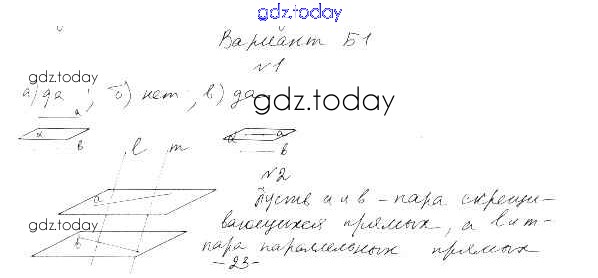 gdz.today
Вариант Б1
№1
gdz.today
а) да ; б) нет ; в) да
gdz.today
a
α
в
α a
в
l m
№2
a
Пусть а и в - пара скрещи-
вающихся прямых, а l и m -
gdz.today
b
пара параллельных прямых
- 23 -